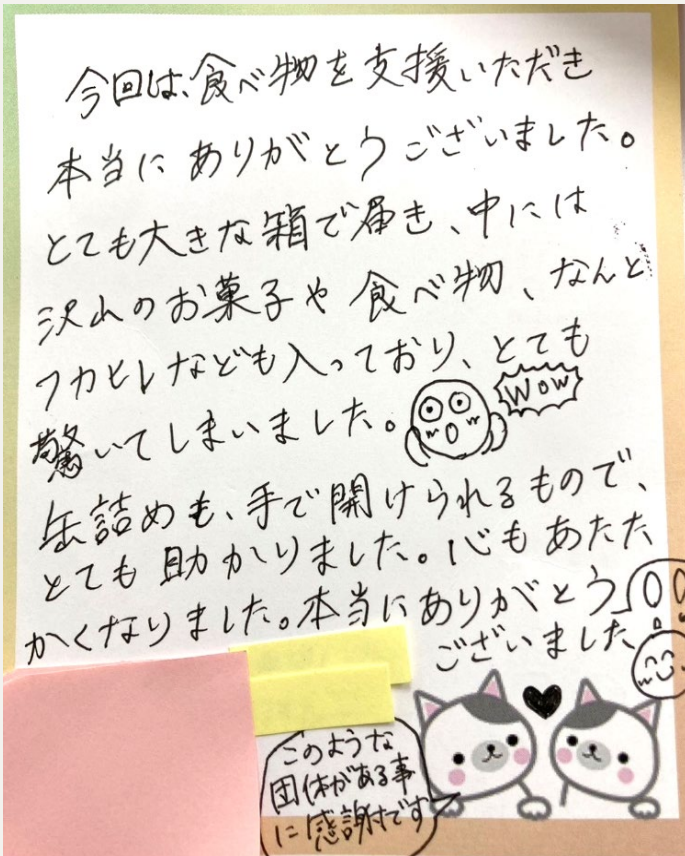 今回は、食べ物を支援いただき
本当にありがとうございました。
とても大きな箱で届き、中には
沢山のお菓子や食べ物、なんと
フカヒレなども入っており、とても
驚いてしまいました。
WOW
缶詰めも、手で開けられるもので、
とても助かりました。心もあたた
かくなりました。本当にありがとう
ございました
このような
団体がある事
に感謝です